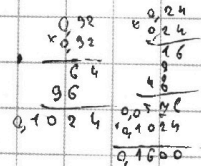 0,32
× 0,32
6 4
96
0,1024
0,24
× 0,24
16
8
8
4
0,0576
0,1024
0,1600